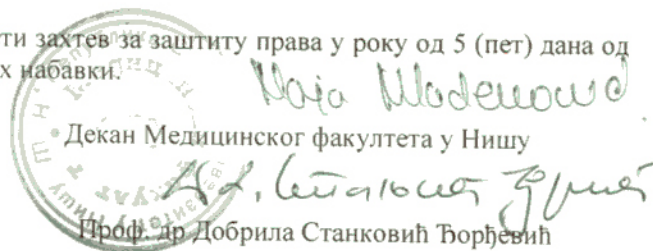 ти захтев за заштиту права у року од 5 (пет) дана од
х набавки.
Декан Медицинског факултета у Нишу
Проф. др Добрила Станковић Ђорђевић